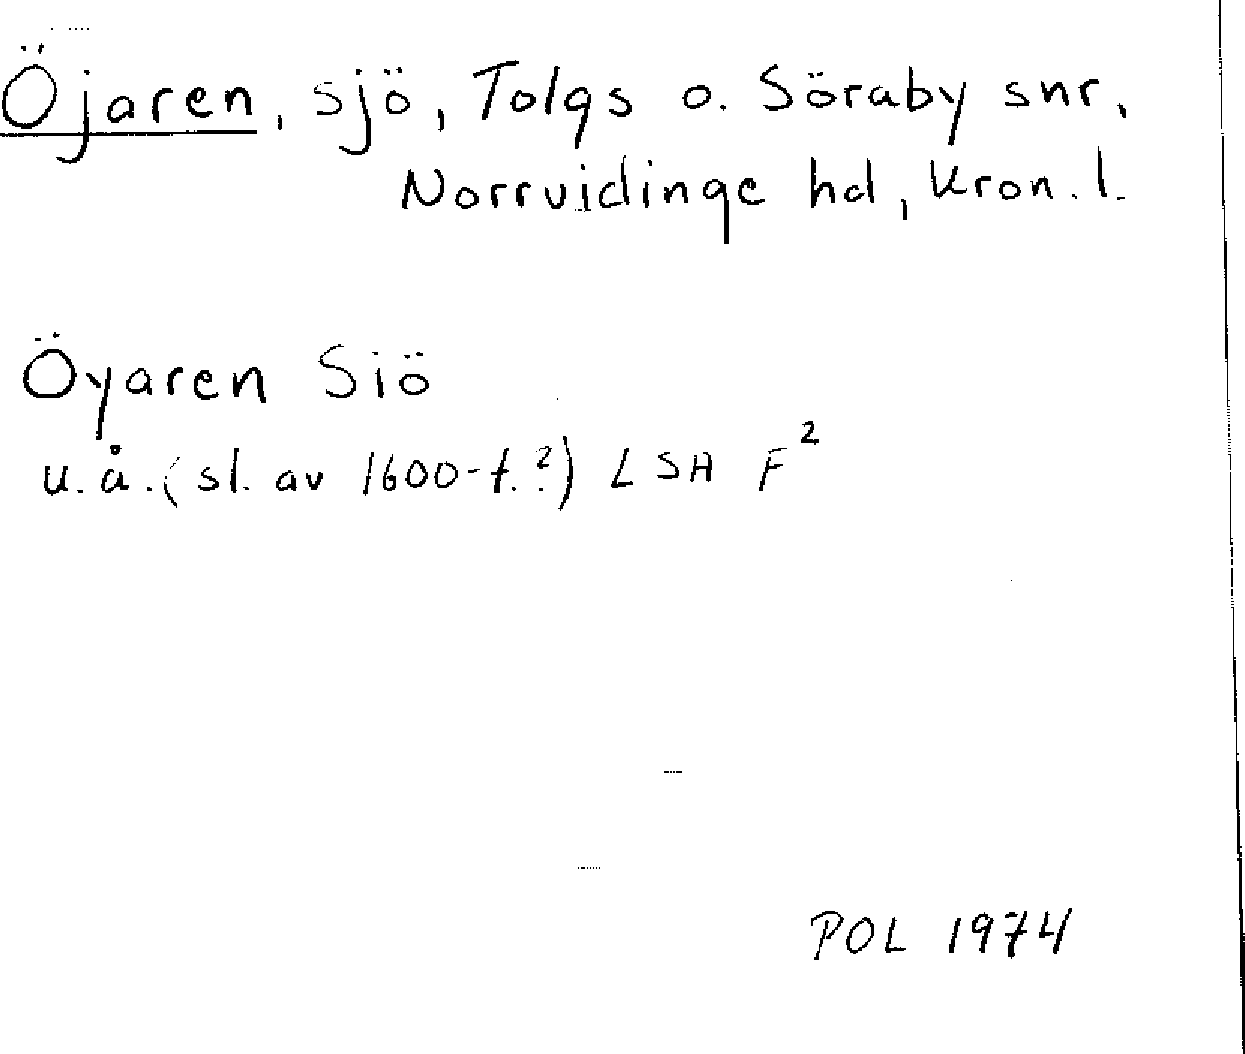 Öjaren, sjö, Tolgs o. Söraby snr,
Norrvidinge hd, Kron. l.
Öyaren Siö
u.å. (sl. av 1600-t.?) LSA F²
POL 1974